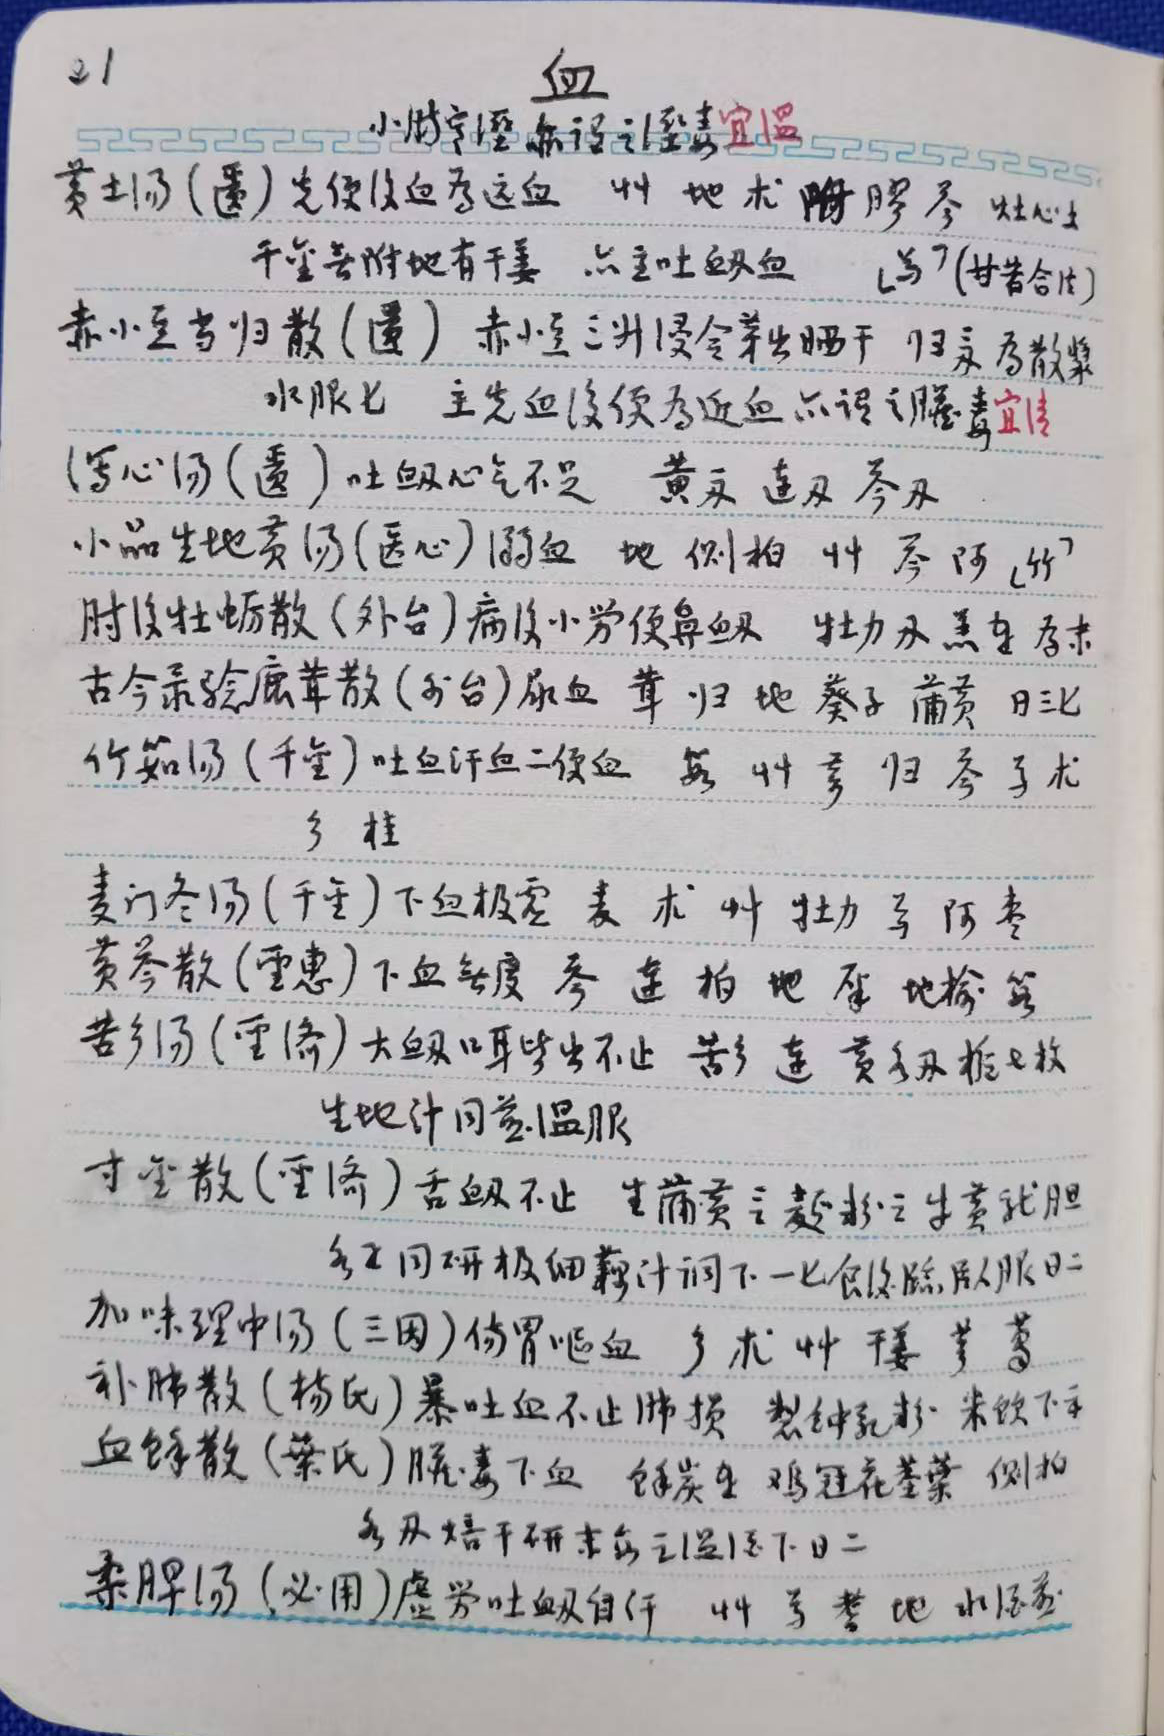 21
血
小肠寒湿 亦谓之湿毒 宜温
黄土汤(匮)先便後血为远血 艸 地 术 附 膠 芩 灶心土
千金无附地有干姜 亦主吐血衄血 (甘昔合法)
赤小豆当归散(匮) 赤小豆三升浸令芽出晒干 归 为散漿
水服匕 主先血後便为近血亦谓之臓毒 宜清
泻心汤(匮)吐衄心气不足 黄 连 芩
小品生地黄汤(医心)溺血 地 侧柏 艸 芩 阿 竹
肘後牡蛎散(外台)病後小劳便鼻衄 牡力 羔 为末
古今录验鹿茸散(外台)尿血 茸 归 地 葵子 蒲黄 日三匕
竹茹汤(千金)吐血汗血二便血 艸 芎 归 芩 术
桂
麦门冬汤(千金)下血极虚 麦 术 艸 牡力 芍 阿 枣
黄芩散(圣惠)下血无度 芩 连 柏 地 地榆
苦参汤(圣济)大衄口耳皆出不止 苦参 连 黄 各 栀七枚
生地汁同煎温服
寸金散(圣济)舌衄不止 生蒲黄三 牛黄龙胆
各 同研极细藕汁调下一匕食後临卧服日二
加味理中汤(三因)伤胃呕血 参 术 艸 干姜 芎 葛
补肺散(杨氏)暴吐血不止肺损 製钟乳粉 米饮下
血馀散(葉氏)臓毒下血 馀炭 鸡冠花茎葉 侧柏
各 焙干研末 温酒下日二
柔脾汤(必用)虚劳吐衄自汗 艸 芍 地 水酒煎